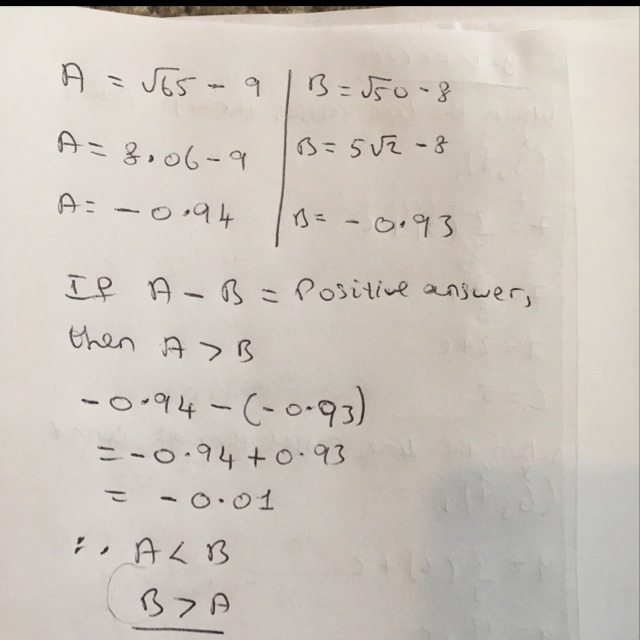 A = √65 - 9
A = 8.06 - 9
A = - 0.94
B = √50 - 8
B = 5√2 - 8
B = - 0.93
If A - B = Positive answer,
then A > B
-0.94 - (-0.93)
= -0.94 + 0.93
= - 0.01
∴ A < B
B > A